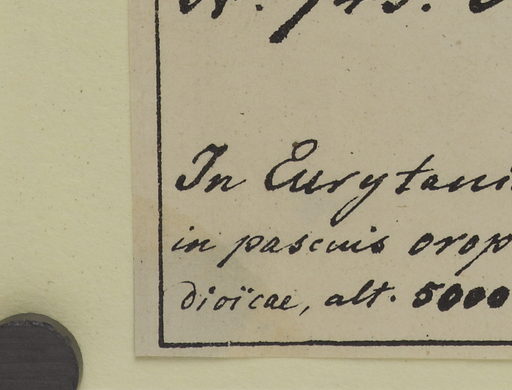 In Eurytani
in pascuis orop
dioïcae, alt. 5000